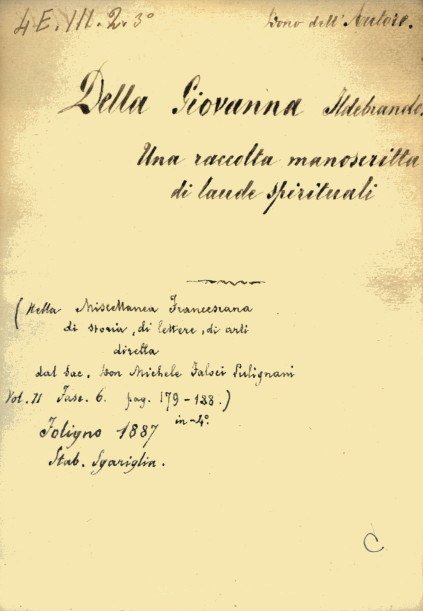 4 E. VII. 2. 3°
Dono dell'Autore.
Della Giovanna Ildebrando.
Una raccolta manoscritta
di laude spirituali
(Nella Miscellanea Francescana
di storia, di lettere, di arti
diretta
dal Sac. Don Michele Faloci Pulignani
Vol. II Fasc. 6. pag. 179-183.)
in-4°.
Foligno 1887
Stab. Sgariglia.
C